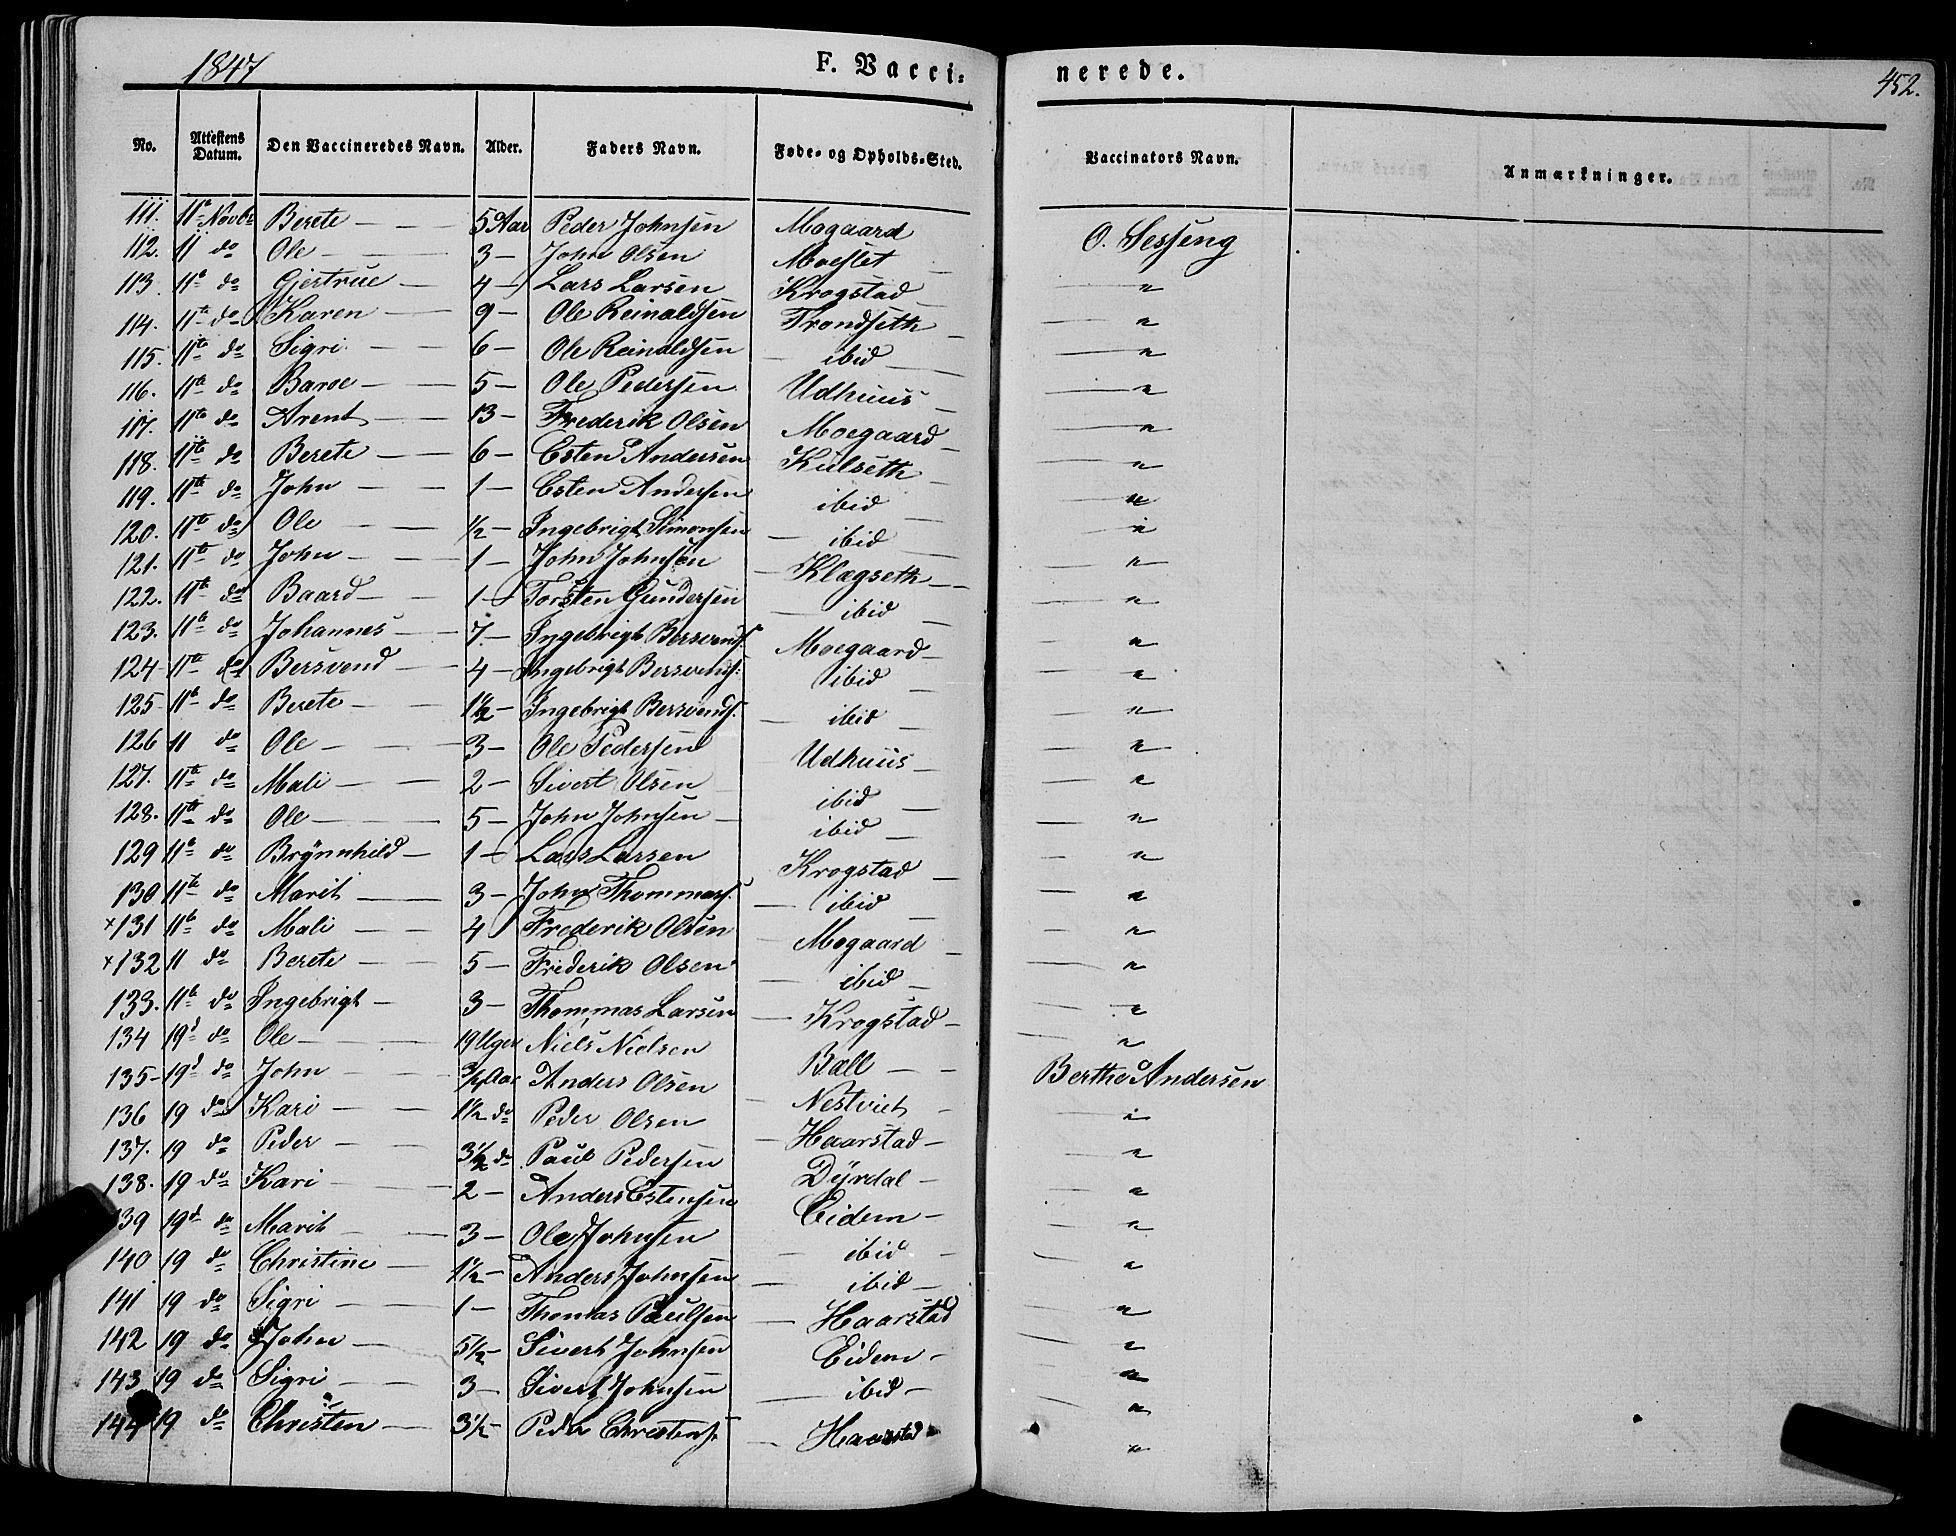 1847 F. Vacci- nerede. 452.
No. Attestens Datum. Den Vaccineredes Navn. Alder. Faders Navn. Føde- og Opholds-Sted. Vaccinators Navn. Anmærkninger.
111. 11te Novbr Berete — — 5 Aar Peder Johnsen Mogaard O. Sesseng
112. 11 do Ole — — 3 — John Olsen Moeslet — — "
113. 11te do Gjertrue — 4 — Lars Larsen Krogstad — — "
114. 11te do Karen — — 9 — Ole Reinaldsen Trondseth — — "
115. 11te do Sigri — — 6 — Ole Reinaldsen — ibid — — "
116. 11te do Baroe — — 5 — Ole Pedersen Udhuus — — "
117. 11te do Arent — — 13 — Frederik Olsen Moegaard — — "
118. 11te do Berete — — 6 — Esten Andersen Kulseth — — "
119. 11te do John — — 1 — Esten Andersen ibid — — "
120. 11te do Ole — — 1/2 — Ingebrigt Simonsen — ibid — — "
121. 11te do John — — 1 — John Johnsen — Klægseth — — "
122. 11te do Baard — — 1 — Torsten Gundersen — ibid — — "
123. 11te do Johannes — — 7. — Ingebrigt Bersvends. Moegaard — — "
124 11te do Bersvend — — 4 — Ingebrigt Bersvends. ibid — — "
125 11te do Berete — — 1 1/2 — Ingebrigt Bersvends. — ibid — — "
126 11 do Ole — — 3 — Ole Pedersen Udhuus — — "
127. 11te do Mali — — 2 — Sivert Olsen ibid — — "
128. 11te do Ole — — 5 — John Johnsen — ibid — — "
129 11te do Brynnhild — 1 — Lars Larsen Krogstad — — "
130 11te do Marit — — 3 — John Thommas. — ibid — — "
×131 11te do Mali — — 4 Frederik Olsen — Mogaard — — "
×132 11 do Berete — — 5 — Friderik Olsen — ibid — — "
133. 11te do Ingebrigt — 3 — Thommas Larsen — Krogstad — — "
134 19d do Ole — — 19 Uger Niels Nielsen Ball — — — "
135 — 19d do John — — 3/4 Aar Anders Olsen Nestviet — Berthe Andersen
136 19 do Kari — — 1 1/2 do Peder Olsen — Haarstad — — "
137. 19 do Peder — — 3 1/2 do Paul Pedersen Dyrdal — — "
138. 19 do Kari — — 2 — Anders Estensen Eidem — — "
139 19d do Marit — — 3 — Ole Johnsen — ibid — — "
140 19 do Christine — 1 1/2 — Anders Johnsen — ibid — — "
141 19 do Sigri — — 1 — Thomas Paulsen — Haarstad — "
142 19 do John — 5 1/2 — Sivert Johnsen Eidem — — "
143 19 do Sigri — — 3 — Sivert Johnsen — ibid — — "
144 19 do Christen — 3 1/2 — Peder Christens. — Haarstad — "